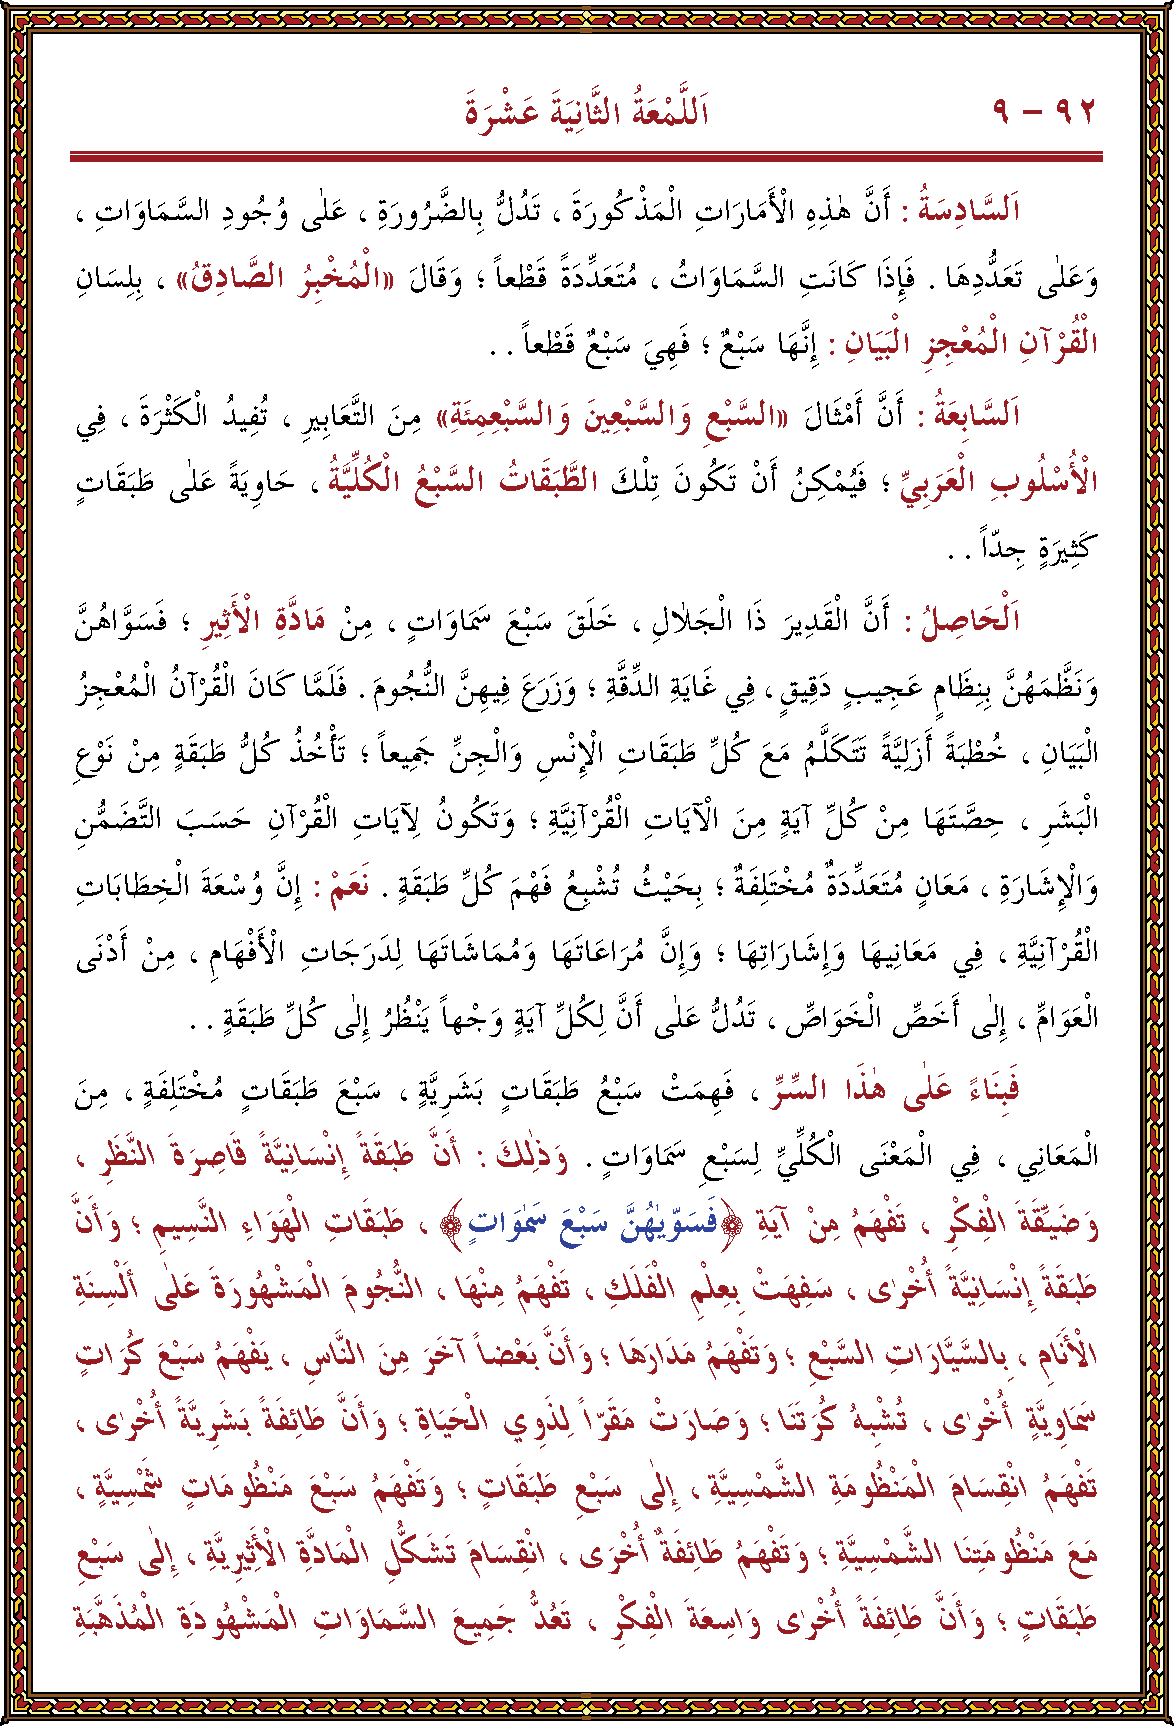 ٩٢ – ٩
اَللَّمْعَةُ الثَّانِيَةَ عَشْرَةَ
اَلسَّادِسَةُ : أَنَّ هٰذِهِ الْأَمَارَاتِ الْمَذْكُورَةَ ، تَدُلُّ بِالضَّرُورَةِ ، عَلٰى وُجُودِ السَّمَاوَاتِ ،
وَعَلٰى تَعَدُّدِهَا . فَإِذَا كَانَتِ السَّمَاوَاتُ ، مُتَعَدِّدَةً قَطْعاً ؛ وَقَالَ «الْمُخْبِرُ الصَّادِقُ» ، بِلِسَانِ
الْقُرْآنِ الْمُعْجِزِ الْبَيَانِ : إِنَّهَا سَبْعٌ ؛ فَهِيَ سَبْعٌ قَطْعاً . .
اَلسَّابِعَةُ : أَنَّ أَمْثَالَ «السَّبْعِ وَالسَّبْعِينَ وَالسَّبْعِمِئَةِ» مِنَ التَّعَابِيرِ ، تُفِيدُ الْكَثْرَةَ ، فِي
الْأُسْلُوبِ الْعَرَبِيِّ ؛ فَيُمْكِنُ أَنْ تَكُونَ تِلْكَ الطَّبَقَاتُ السَّبْعُ الْكُلِّيَّةُ ، حَاوِيَةً عَلٰى طَبَقَاتٍ
كَثِيرَةٍ جِدّاً . .
اَلْحَاصِلُ : أَنَّ الْقَدِيرَ ذَا الْجَلَالِ ، خَلَقَ سَبْعَ سَمَاوَاتٍ ، مِنْ مَادَّةِ الْأَثِيرِ ؛ فَسَوَّاهُنَّ
وَنَظَّمَهُنَّ بِنِظَامٍ عَجِيبٍ دَقِيقٍ ، فِي غَايَةِ الدِّقَّةِ ؛ وَزَرَعَ فِيهِنَّ النُّجُومَ . فَلَمَّا كَانَ الْقُرْآنُ الْمُعْجِزُ
الْبَيَانِ ، خُطْبَةً أَزَلِيَّةً تَتَكَلَّمُ مَعَ كُلِّ طَبَقَاتِ الْإِنْسِ وَالْجِنِّ جَمِيعاً ؛ تَأْخُذُ كُلُّ طَبَقَةٍ مِنْ نَوْعِ
الْبَشَرِ ، حِصَّتَهَا مِنْ كُلِّ آيَةٍ مِنَ الْآيَاتِ الْقُرْآنِيَّةِ ؛ وَتَكُونُ لِآيَاتِ الْقُرْآنِ حَسَبَ التَّضَمُّنِ
وَالْإِشَارَةِ ، مَعَانٍ مُتَعَدِّدَةٌ مُخْتَلِفَةٌ ؛ بِحَيْثُ تُشْبِعُ فَهْمَ كُلِّ طَبَقَةٍ . نَعَمْ : إِنَّ وُسْعَةَ الْخِطَابَاتِ
الْقُرْآنِيَّةِ ، فِي مَعَانِيهَا وَإِشَارَاتِهَا ؛ وَإِنَّ مُرَاعَاتَهَا وَمُمَاشَاتَهَا لِدَرَجَاتِ الْأَفْهَامِ ، مِنْ أَدْنَى
الْعَوَامِّ ، إِلٰى أَخَصِّ الْخَوَاصِّ ، تَدُلُّ عَلٰى أَنَّ لِكُلِّ آيَةٍ وَجْهاً يَنْظُرُ إِلٰى كُلِّ طَبَقَةٍ . .
فَبِنَاءً عَلٰى هٰذَا السِّرِّ ، فَهِمَتْ سَبْعُ طَبَقَاتٍ بَشَرِيَّةٍ ، سَبْعَ طَبَقَاتٍ مُخْتَلِفَةٍ ، مِنَ
الْمَعَانِي ، فِي الْمَعْنَى الْكُلِّيِّ لِسَبْعِ سَمَاوَاتٍ . وَذٰلِكَ : أَنَّ طَبَقَةً إِنْسَانِيَّةً قَاصِرَةَ النَّظَرِ ،
وَضَيِّقَةَ الْفِكْرِ ، تَفْهَمُ مِنْ آيَةِ ﴿فَسَوّٰيهُنَّ سَبْعَ سَمٰوَاتٍ﴾ ، طَبَقَاتِ الْهَوَاءِ النَّسِيمِ ؛ وَأَنَّ
طَبَقَةً إِنْسَانِيَّةً أُخْرٰى ، سَفِهَتْ بِعِلْمِ الْفَلَكِ ، تَفْهَمُ مِنْهَا ، النُّجُومَ الْمَشْهُورَةَ عَلٰى أَلْسِنَةِ
الْأَنَامِ ، بِالسَّيَّارَاتِ السَّبْعِ ؛ وَتَفْهَمُ مَدَارَهَا ؛ وَأَنَّ بَعْضاً آخَرَ مِنَ النَّاسِ ، يَفْهَمُ سَبْعَ كُرَاتٍ
سَمَاوِيَّةٍ أُخْرٰى ، تُشْبِهُ كُرَتَنَا ؛ وَصَارَتْ مَقَرّاً لِذَوِي الْحَيَاةِ ؛ وَأَنَّ طَائِفَةً بَشَرِيَّةً أُخْرٰى ،
تَفْهَمُ انْقِسَامَ الْمَنْظُومَةِ الشَّمْسِيَّةِ ، إِلٰى سَبْعِ طَبَقَاتٍ ؛ وَتَفْهَمُ سَبْعَ مَنْظُومَاتٍ شَمْسِيَّةٍ ،
مَعَ مَنْظُومَتِنَا الشَّمْسِيَّةِ ؛ وَتَفْهَمُ طَائِفَةٌ أُخْرَى ، انْقِسَامَ تَشَكُّلِ الْمَادَّةِ الْأَثِيرِيَّةِ ، إِلٰى سَبْعِ
طَبَقَاتٍ ؛ وَأَنَّ طَائِفَةً أُخْرٰى وَاسِعَةَ الْفِكْرِ ، تَعُدُّ جَمِيعَ السَّمَاوَاتِ الْمَشْهُودَةِ الْمُذَهَّبَةِ